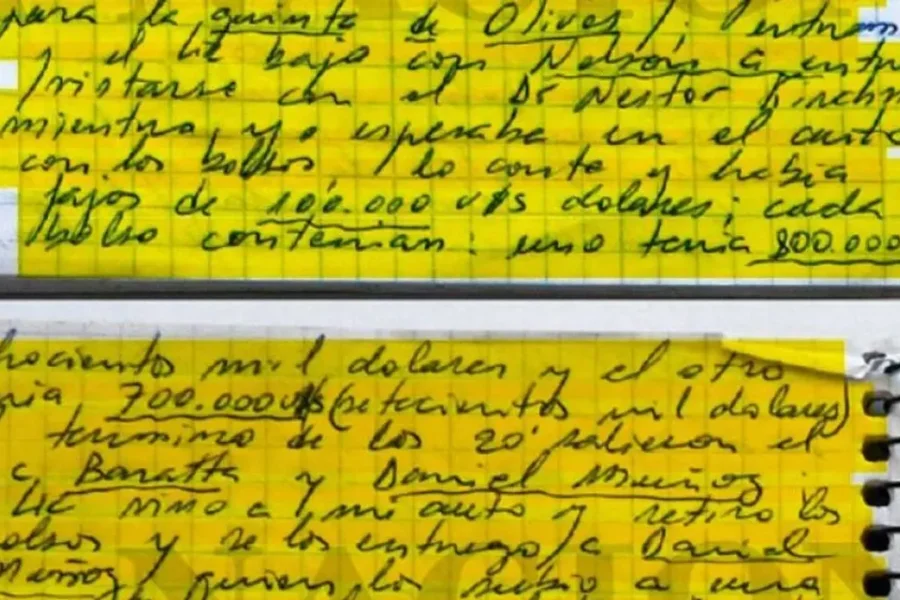 para la quinta de Olivos /; entram
el Lic bajo con Nelson a entre
/vistarse con el Dr Nestor Kirchn
mientras, yo esperaba en el auto
con los bolsos /lo conte y habia
fajos de 100.000 u$s dolares; cada
bolso contenian: uno tenia 800.000
hocientos mil dolares y el otro
nia 700.000 u$s (setecientos mil dolares)
termino de los 20' salieron el
c, Baratta y Daniel Muñoz
Lic vino a mi auto y retiro los
olsos y se los entrego /a Daniel
Muñoz / quien los subio a una